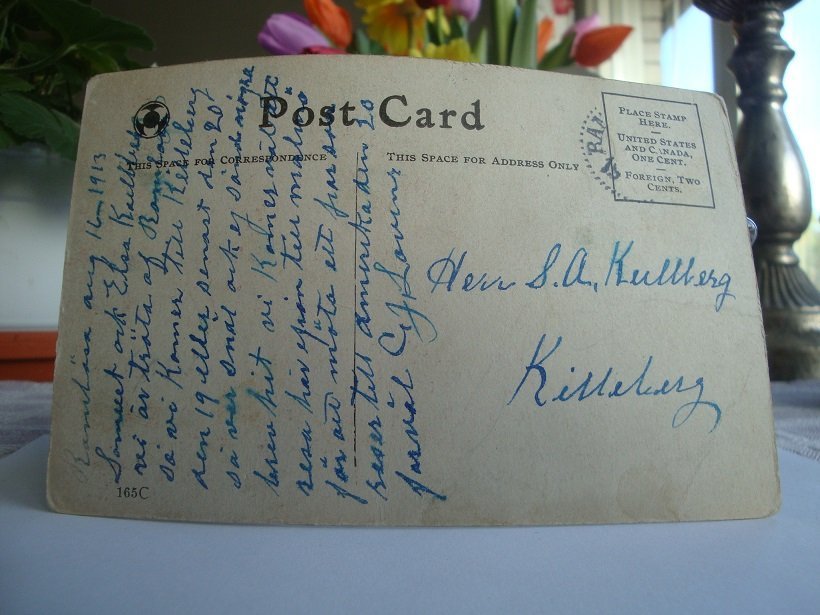 Post Card
THIS SPACE FOR CORRESPONDENCE
THIS SPACE FOR ADDRESS ONLY
PLACE STAMP
HERE.
UNITED STATES
AND CANADA,
ONE CENT.
FOREIGN, TWO
CENTS.
aug 16 1913
Samuel och Elsa Kullberg
vi är träta af
så vi Komer till Killeberg
den 19 eller senast den 20
så ver snäl och ej sänd några
brev hit vi Komer
resa härifrån till malmö
för att möta ett par som
reser till amerika den 20
farväl C J Lovins
Herr S. A. Kullberg
Killeberg
165C